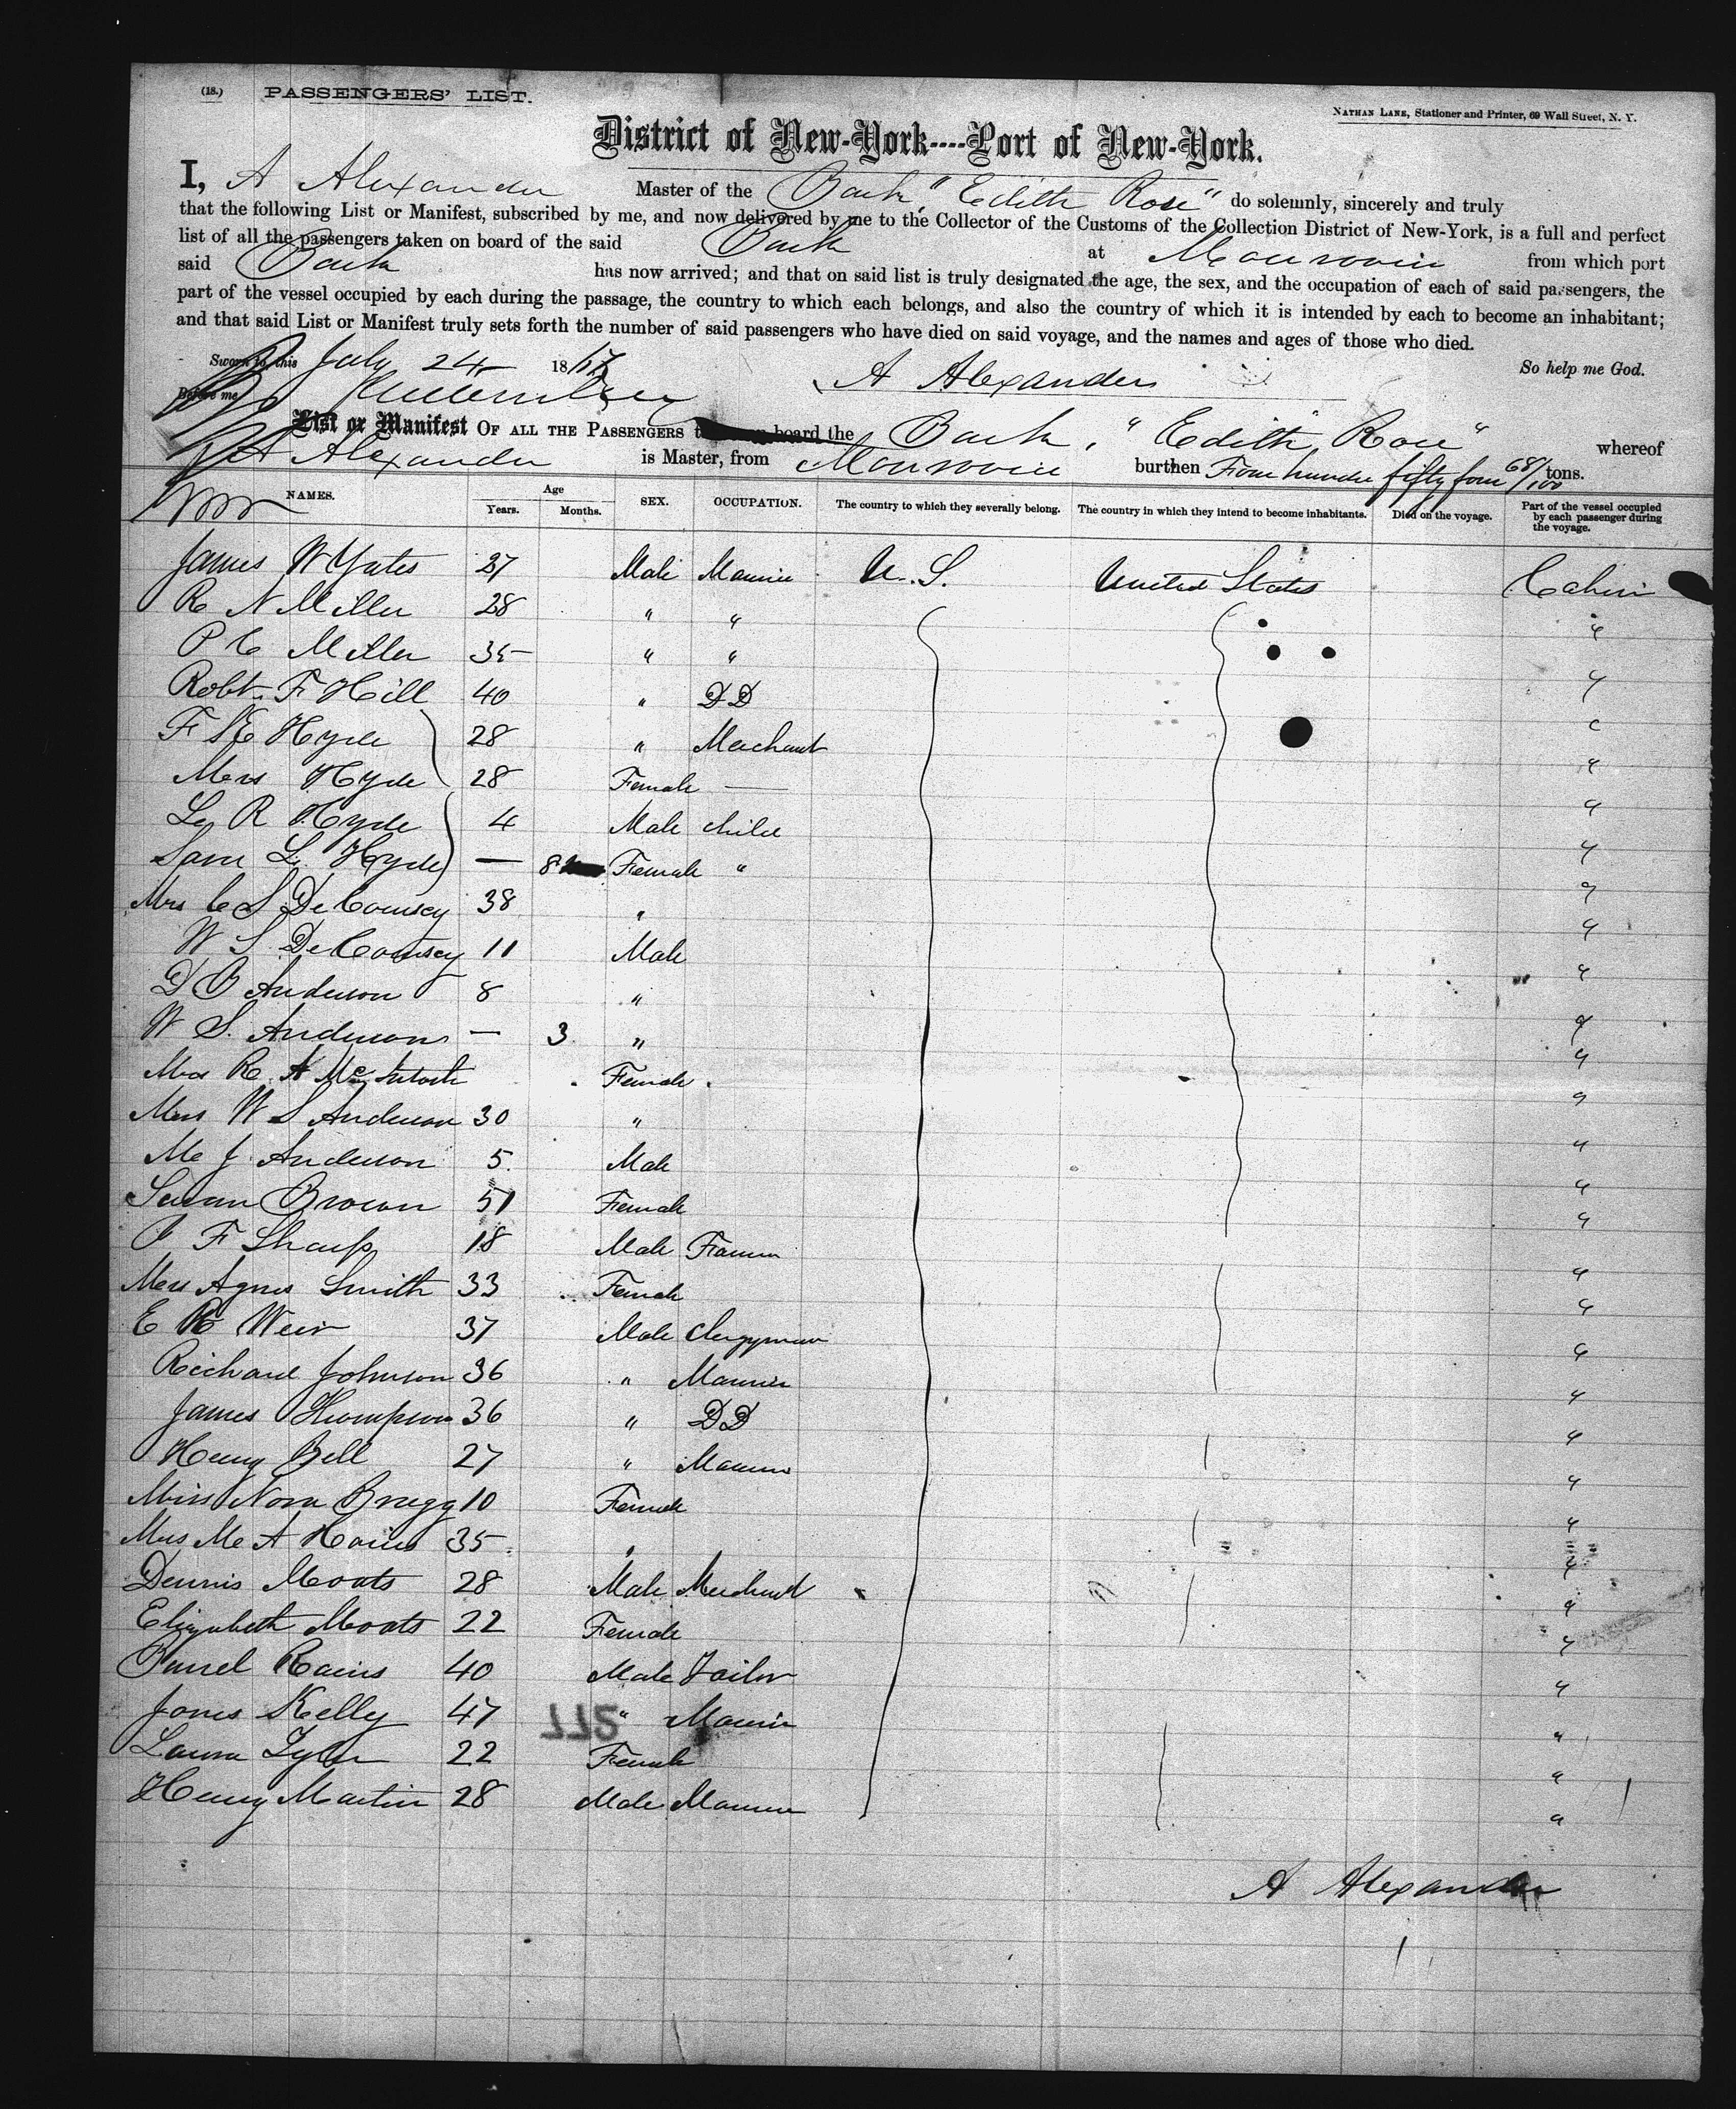 (18.) PASSENGERS' LIST.
NATHAN LANE, Stationer and Printer, 69 Wall Street, N. Y.
District of New-York----Port of New-York.
I, A Alexander Master of the Bark, "Edith Rose" do solemnly, sincerely and truly
that the following List or Manifest, subscribed by me, and now delivered by me to the Collector of the Customs of the Collection District of New-York, is a full and perfect
list of all the passengers taken on board of the said Bark at Monrovia from which port
said Bark has now arrived; and that on said list is truly designated the age, the sex, and the occupation of each of said passengers, the
part of the vessel occupied by each during the passage, the country to which each belongs, and also the country of which it is intended by each to become an inhabitant;
and that said List or Manifest truly sets forth the number of said passengers who have died on said voyage, and the names and ages of those who died.
Sworn to this July 24 18 So help me God.
Before me A Alexander
List or Manifest OF ALL THE PASSENGERS board the Bark, "Edith Rose" whereof
A Alexander is Master, from Monrovia burthen Four hundre fifty four 68/100 tons.
NAMES. Age Years. Months. SEX. OCCUPATION. The country to which they severally belong. The country in which they intend to become inhabitants. Died on the voyage. Part of the vessel occupied by each passenger during the voyage.
James W Yates 27 Male U.S. United States Cabin
R N Miller 28 " " "
P C Miller 35 " " "
Robt. F Hill 40 " DD "
F Hyde 28 " Merchant "
Mrs Hyde 28 Female — "
Le R Hyde 4 Male child "
Sam L. Hyde — 8 Female " "
Mrs C S De Coursey 38 " "
W S De Coursey 11 Male "
D O Anderson 8 " "
W S. Anderson — 3 " "
R. A McIntosh Female "
Mrs W S Anderson 30 " "
Mc J Anderson 5 Male "
Susan Brown 51 Female "
F Sharp 18 Male "
Mrs Agnes Smith 33 Female "
E Weir 37 Male Clergyman "
Richard Johnson 36 " "
James Thompson 36 " DD "
Henry Bell 27 " "
Miss Nora Bragg 10 Female "
Mrs M A 35 " "
Dennis Moats 28 Male Merchant "
Elizabeth Moats 22 Female "
Rains 40 Male Tailor "
Jones Kelly 47 " "
Laura Tyler 22 Female "
Henry Martin 28 Male "
A Alexander